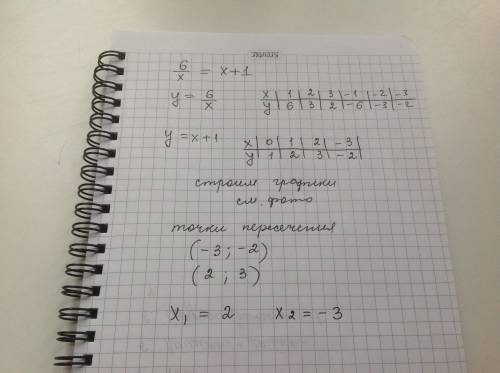 6/x = x+1
y = 6/x
x | 1 | 2 | 3 | -1 | -2 | -3
y | 6 | 3 | 2 | -6 | -3 | -2
y = x+1
x | 0 | 1 | 2 | -3
y | 1 | 2 | 3 | -2
строим графики
см. фото
точки пересечения
(-3 ; -2)
(2 ; 3)
x₁ = 2 x₂ = -3